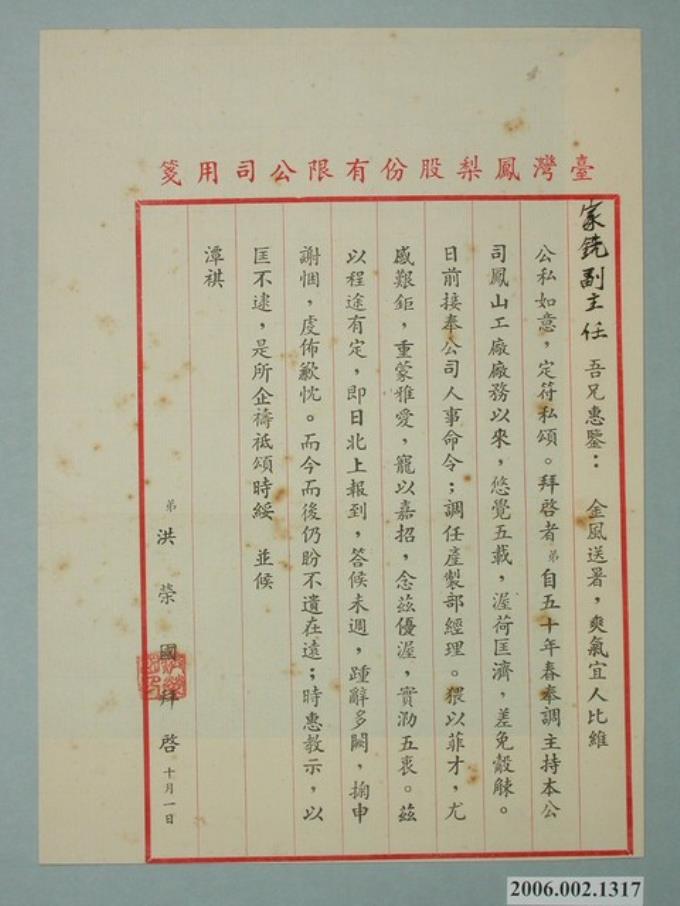 臺灣鳳梨股份有限公司用箋
家銑副主任 吾兄惠鑒： 金風送暑，爽氣宜人比維
公私如意，定符私頌。拜啓者 弟 自五十年春奉調主持本公
司鳳山工廠廠務以來，悠覺五載，渥荷匡濟，差免觳觫。
日前接奉公司人事命令；調任產製部經理。猥以菲才，尤
感艱鉅，重蒙雅愛，寵以嘉招，念茲優渥，實泐五衷。茲
以程途有定，即日北上報到，答候未週，踵辭多闕，掬申
謝悃，虔佈歉忱。而今而後仍盼不遺在遠；時惠教示，以
匡不逮，是所企禱祗頌時綏 並候
潭祺
弟 洪榮國拜啓 十月一日
2006.002.1317